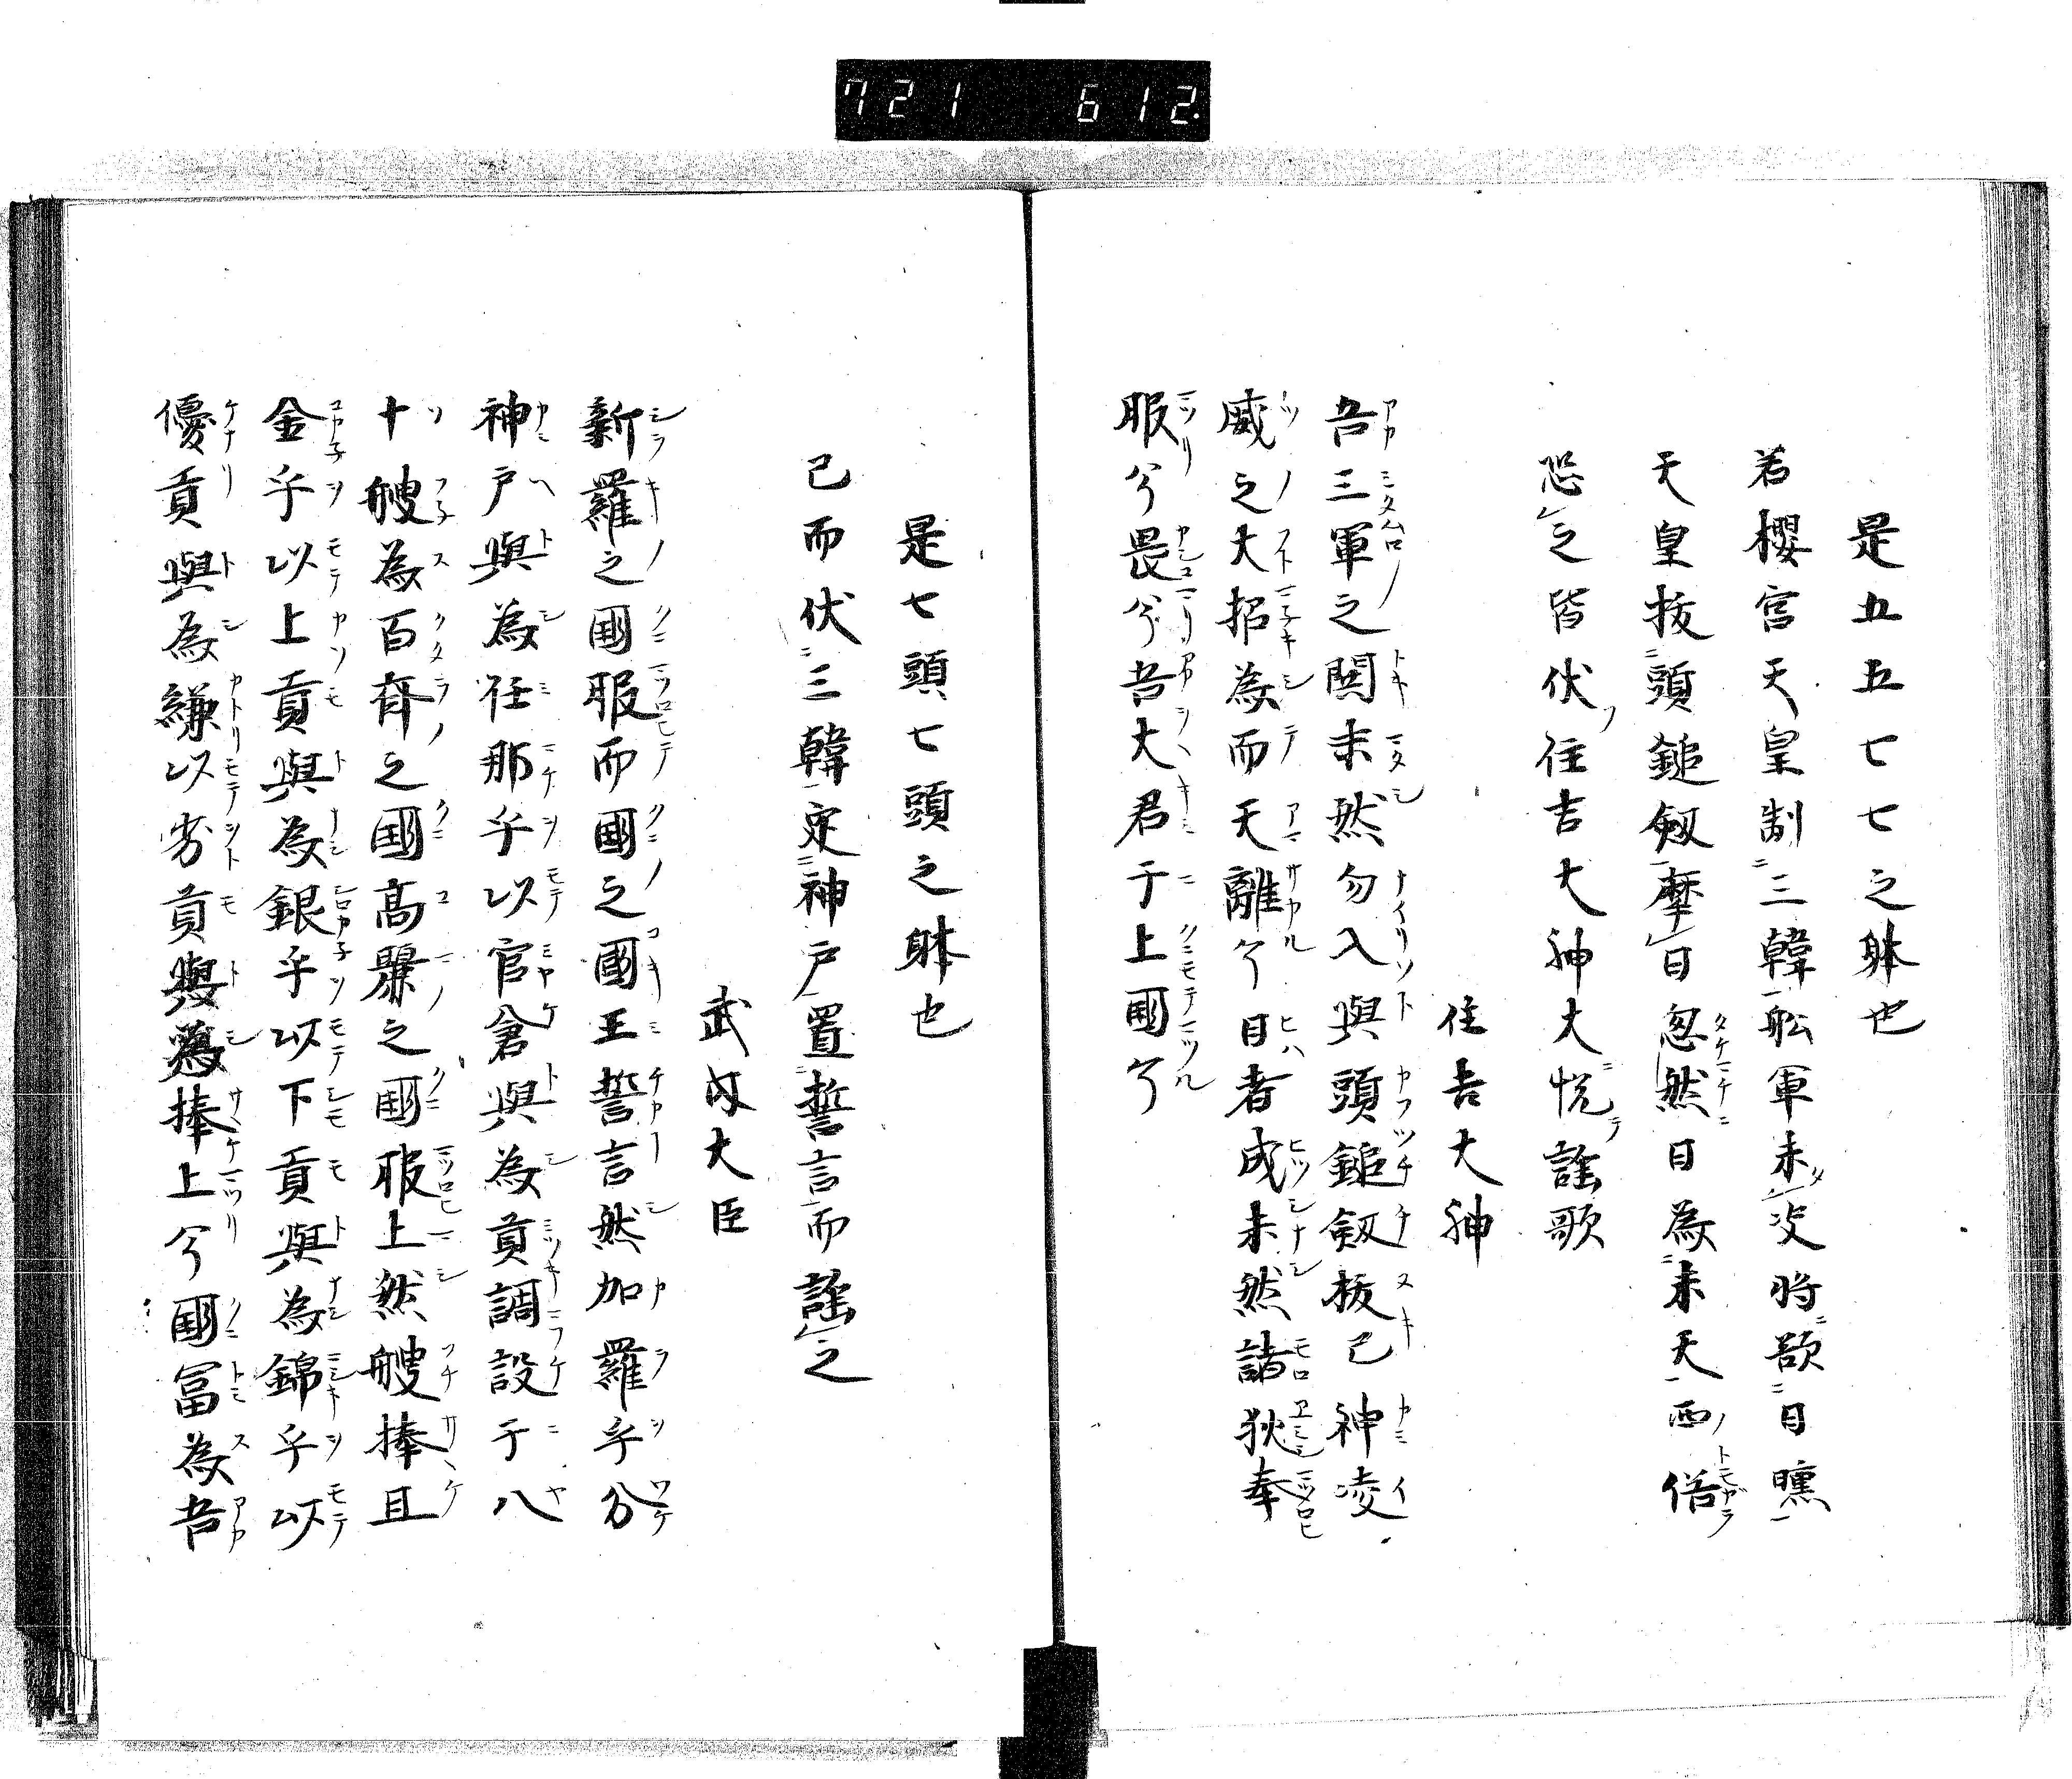 721 612.
是五五七七之躰也
若櫻宮天皇制三韓舩軍未决時欲日曛
天皇抜頭鎚劔摩日忽然日為未天西倍
恐之皆伏住吉大神大悦謡歌
住吉大神
吾三軍之鬨未然勿入與頭鎚劔抜己神凌
威之大招為而天離兮日者成未然諸狄奉
服兮畏兮吾大君于上國兮
是七頭七頭之躰也
己而伏三韓定神戸置誓言而謡之
武内大臣
新羅之國服而國之國王誓言然加羅乎分
神戸與為任那乎以官倉與為貢調設于八
十艘為百齊之国高麗之國服上然艘捧且
金乎以上貢與為銀乎以下貢與為錦乎以
優貢與為縑以劣貢與為捧上兮國冨為吾